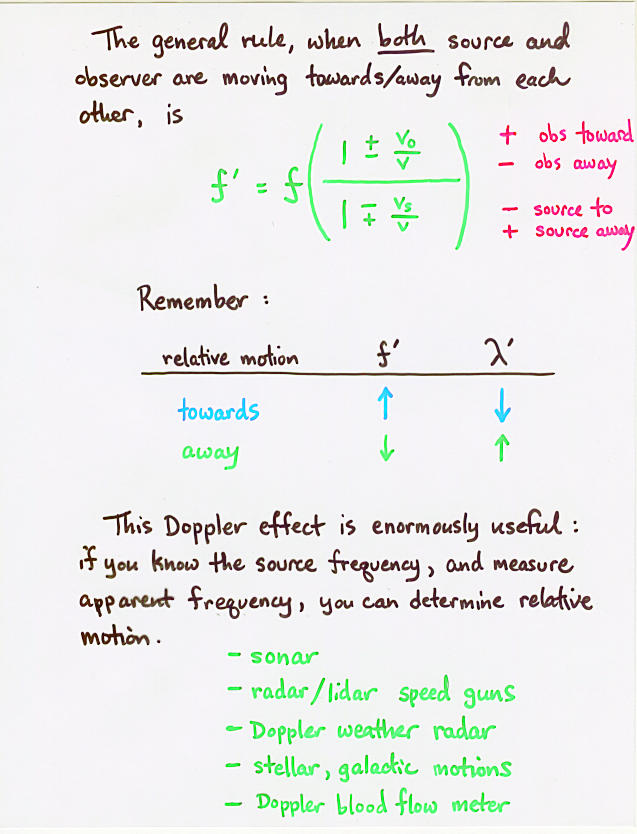 The general rule, when both source and
observer are moving towards/away from each
other, is
f' = f( (1 ± v₀/v) / (1 ∓ vₛ/v) )
+ obs toward
− obs away
− source to
+ source away
Remember :
relative motion f' λ'
towards ↑ ↓
away ↓ ↑
This Doppler effect is enormously useful :
if you know the source frequency, and measure
apparent frequency, you can determine relative
motion.
− sonar
− radar/lidar speed guns
− Doppler weather radar
− stellar, galactic motions
− Doppler blood flow meter